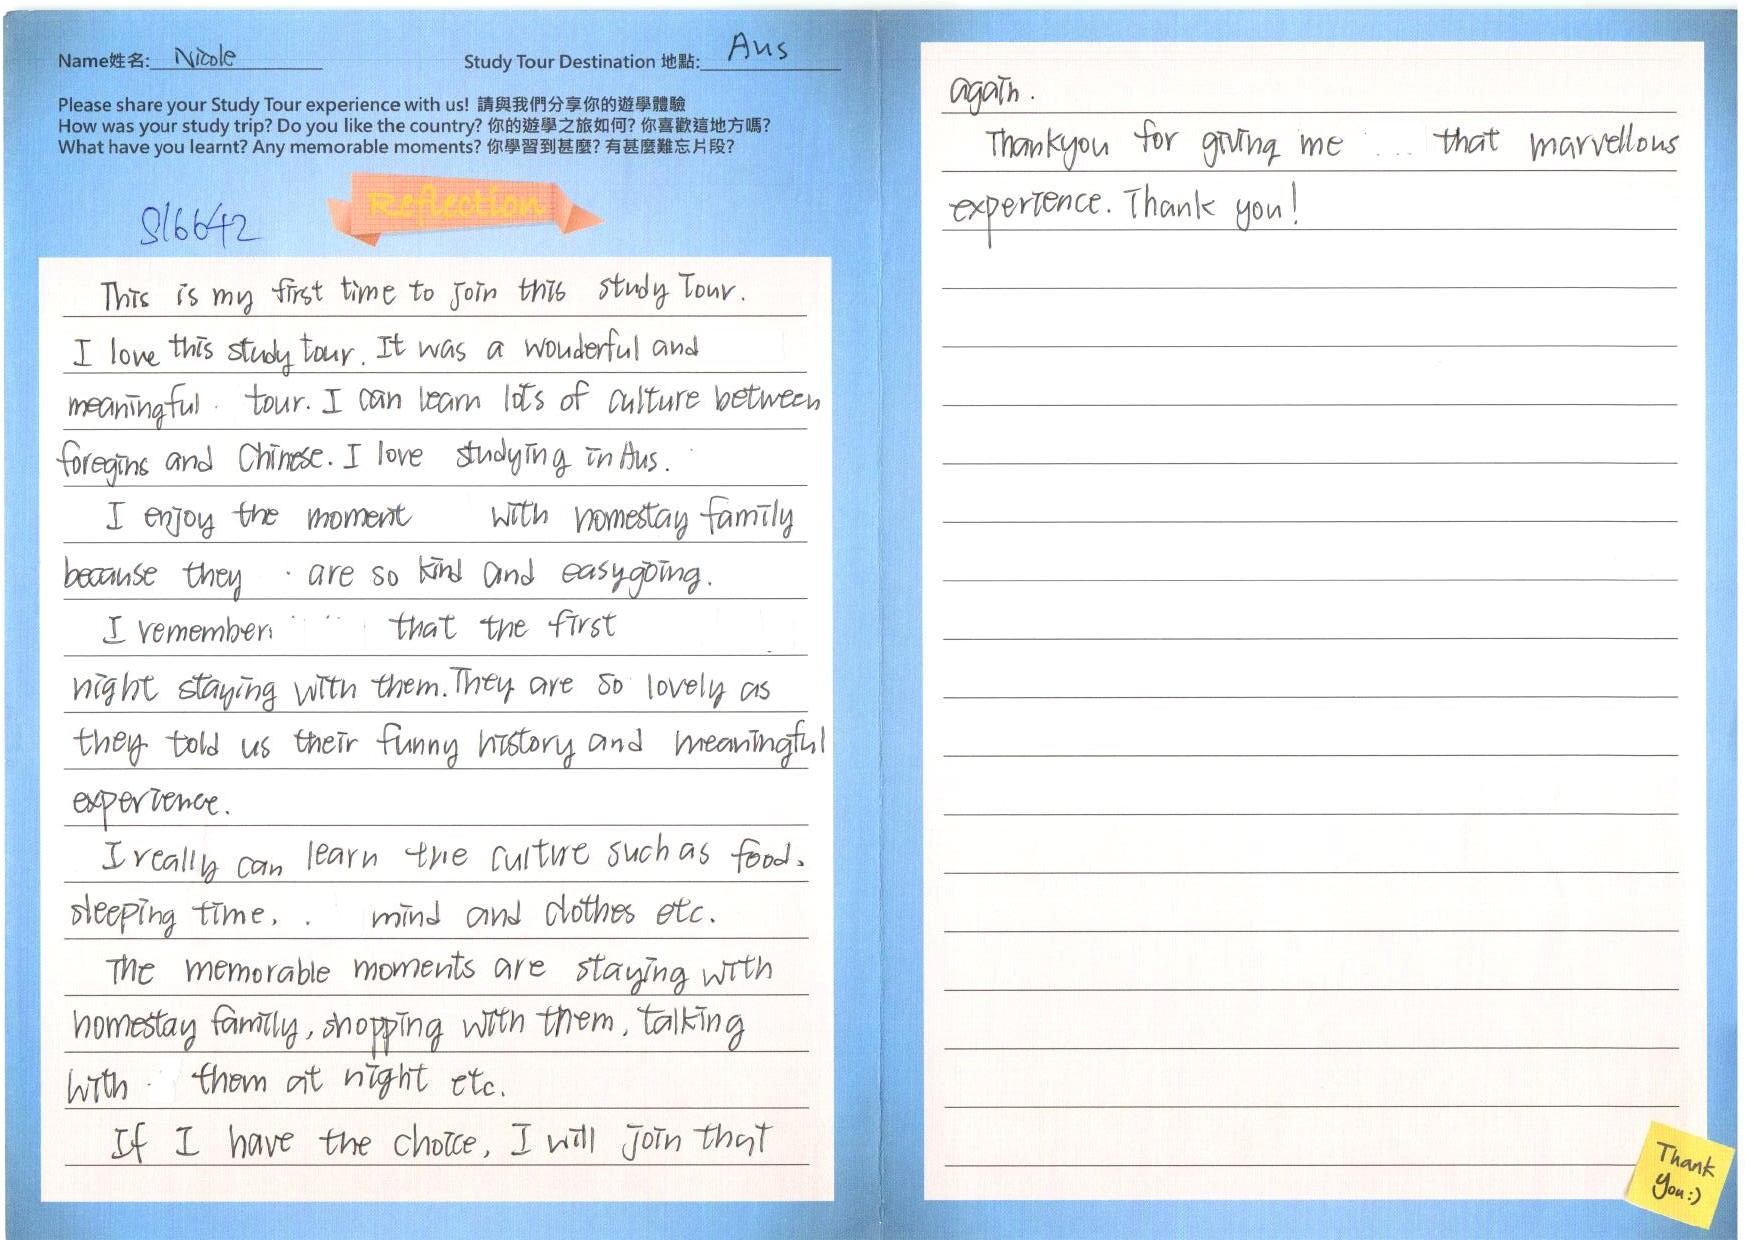 Name姓名: Nicole
Study Tour Destination 地點: Aus
Please share your Study Tour experience with us! 請與我們分享你的遊學體驗
How was your study trip? Do you like the country? 你的遊學之旅如何? 你喜歡這地方嗎?
What have you learnt? Any memorable moments? 你學習到甚麼? 有甚麼難忘片段?
Reflection
S16642
This is my first time to join this study Tour.
I love this study tour. It was a wouderful and
meaningful tour. I can learn lots of culture between
foregins and Chinese. I love studying in Aus.
I enjoy the moment with homestay family
because they are so kind and easygoing.
I remember that the first
night staying with them. They are so lovely as
they told us their funny history and meaningful
experience.
I really can learn the culture such as food,
sleeping time, mind and clothes etc.
The memorable moments are staying with
homestay family, shopping with them, talking
with them at night etc.
If I have the choice, I will join that
again.
Thankyou for giving me ... that marvellous
experience. Thank you!
Thank
You:)